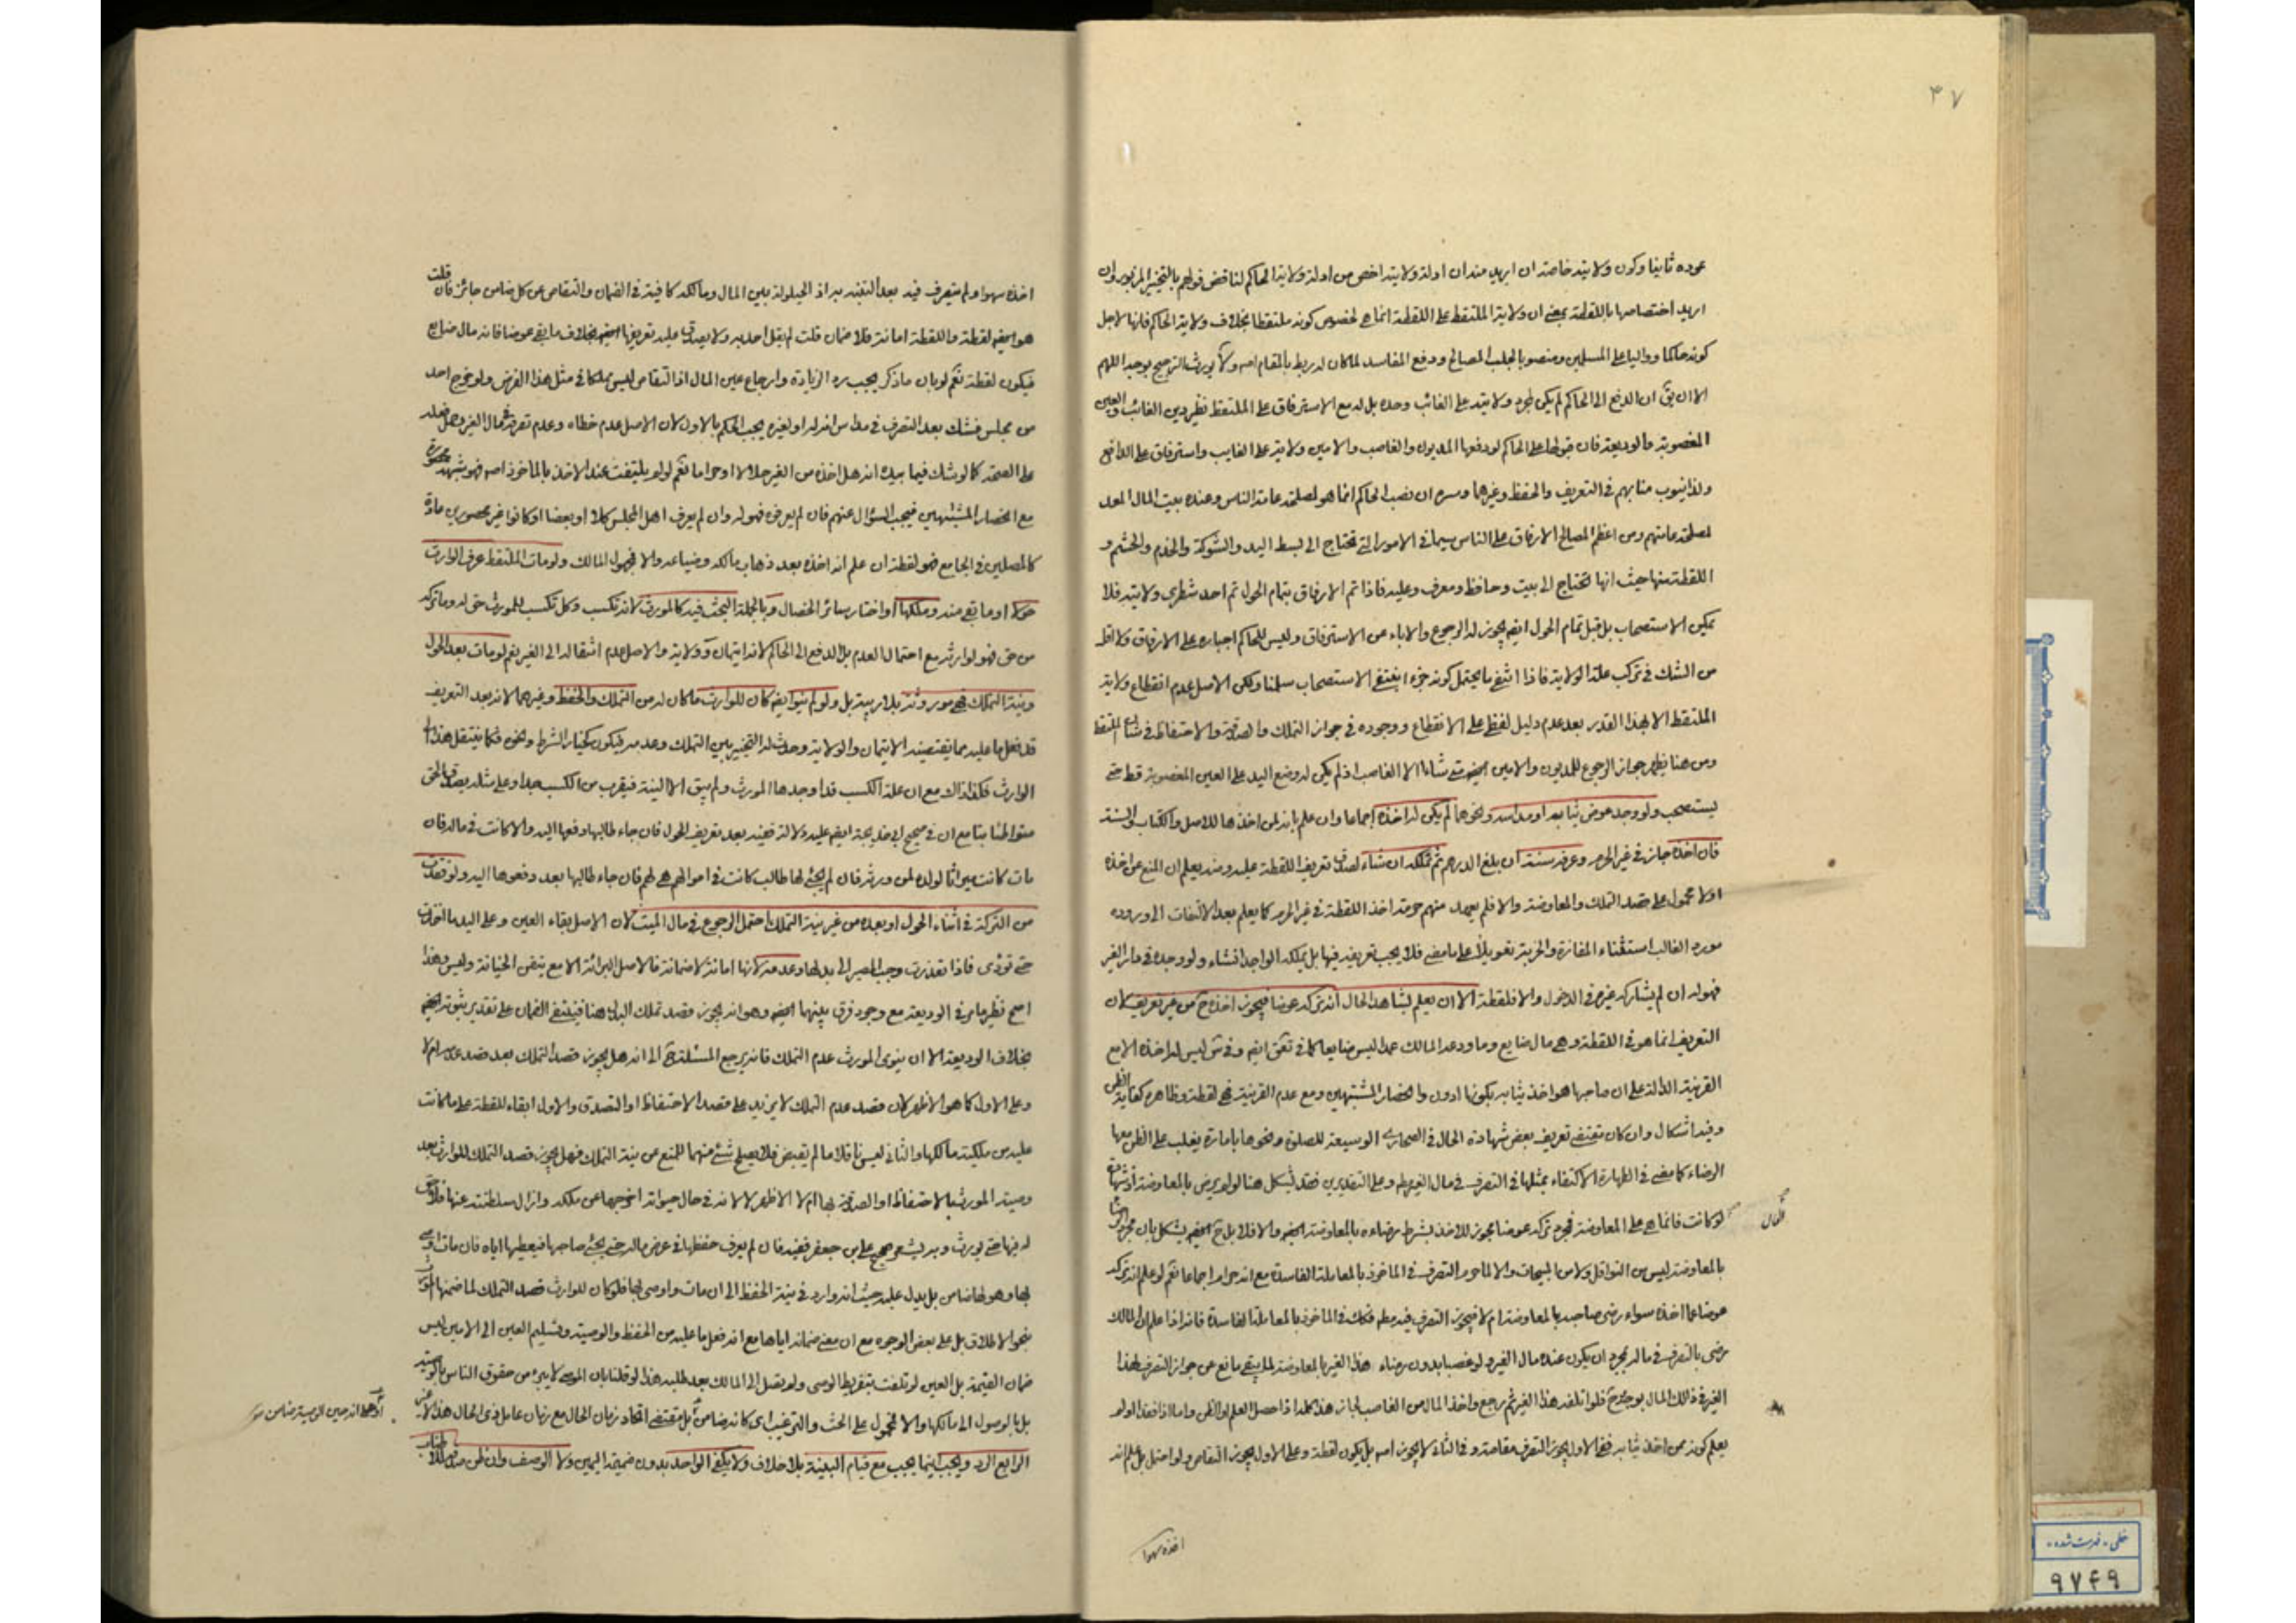 ٣٧
عوده ثانيا وكون ولايته خاصة ان اريد منه ان ادلة ولايته اخص من ادلة ولاية الحاكم لناقض قولهم بالتخيير المزبور وان
اريد اختصاصها باللقطة بمعنى ان ولاية الملتقط على اللقطة انما هي لخصوص كونه ملتقطا بخلاف ولاية الحاكم فانها لاجل
كونه حاكما وواليا على المسلمين ومنصوبا لجلب المصالح ودفع المفاسد لما كان له ربط بالمقام اصه ولا يورث الترجيح بوجه اللهم
الا ان يق ان الدفع الى الحاكم لم يكن لمجرد ولايته على الغائب وحده بل له مع الاسترفاق على الملتقط نظير دين الغائب والعين
المغصوبة والوديعة فان قبولها على الحاكم لو دفعها المديون والغاصب والامين ولاية على الغايب واسترفاق على الدافع
ولذا ينوب منابهم في التعريف والحفظ وغيرهما وسره ان نصب الحاكم انما هو لمصلحة عامة الناس وعنده بيت المال المعد
لمصلحة عامتهم ومن اعظم المصالح الارفاق على الناس سيما في الامور التي تحتاج الى بسط اليد والشوكة والخدم والحشم و
اللقطة منها حيث انها تحتاج الى بيت وحافظ ومعرف وعليه فاذا تم الارفاق بتمام الحول تم احد شطري ولايته فلا
يمكن الاستصحاب بل قبل تمام الحول ايضه يجوز له الرجوع والاباء عن الاسترفاق وليس للحاكم اجباره على الارفاق ولا اقل
من الشك في تركب علة الولاية فاذا انتفى ما يحتمل كونه جزء انتفى الاستصحاب سلمنا ولكن الاصل عدم انقطاع ولاية
الملتقط الا بهذا القدر بعد عدم دليل لفظي على الانقطاع ووجوده في جواز التملك والصدقة والاحتفاظ في شاء الملتقط
ومن هنا يظهر جواز الرجوع للمديون والامين ايضه متى شاءا الا الغاصب اذ لم يكن له وضع اليد على العين المغصوبة قط حتى
يستصحب ولو وجد عوض ثيابه او مداسه ونحوهما لم يكن له اخذه اجماعا وان علم بانه لمن اخذها للاصل والكتاب والسنة
فان اخذه جاز في غير الحرم وعرفه سنة ان بلغ الدرهم ثم تملكه ان شاء لصدق تعريف اللقطة عليه ومنه يعلم ان المنع عن اخذه
اولا محمول على قصد التملك والمعاوضة والا فلم يعهد منهم حرمة اخذ اللقطة في غير الحرم كما يعلم بعد الالتفات الى وروده
مورد الغالب استثناء المفازة والخربة تعويلا على ما مضى فلا يجب تعريفه فيها بل يملكه الواجد انشاء ولو وجده في دار الغير
فهو له ان لم يشاركه غيره في الدخول والا فلقطة الا ان يعلم بشاهد الحال انه تركه عوضا فيجوز اخذه ح من غير تعريف لان
التعريف انما هو في اللقطة وهي مال ضايع وما ودعه المالك عمدا ليس ضايعا كما في ايضه ليس له اخذه الا مع
القرينة الدالة على ان صاحبها هو اخذ ثيابه بكونها ادون وانحصار المشتبهين ومع عدم القرينة فهي لقطة وظاهره كفاية الظن
وفيه اشكال وان كان تقتضي تعريف بعض شهادة الحال في الصحاري الوسيعة للصلوة ونحوها بامارة يغلب على الظن معها
الرضاء كما مضى في الطهارة الاكتفاء بمثلها في التصرف في مال الغير وعلى التقديرين فقد يشكل هنا لو لم يرض بالمعاوضة
لو كانت فانما هي على المعاوضة فمجرد تركه عوضا يجوز للاخذ بشرط رضاءه بالمعاوضة ايضه والا فلا بل ح ايضه يشكل بان مجرد
بالمعاوضة ليس من النواقل ولا من المبيحات والا لما حرم التصرف في الماخوذ بالمعاملة الفاسدة مع انه حرام اجماعا نعم لو علم انه تركه
عوضا عما اخذه سواء رضى صاحبه بالمعاوضة ام لا فيجوز التصرف فيه مطه فكك في الماخوذ بالمعاملة الفاسدة فانه اذا علم ان المالك
رضى بالتصرف في ماله بمجرد ان يكون عنده مال الغير ولو غصبا بدون رضاء هذا الغير بالمعاوضة لم يبق مانع عن جواز التصرف لهذا
الغير في ذلك المال بوجه ح فلو اتلفه هذا الغير ثم رجع واخذ المال من الغاصب لجاز هذا كله اذا حصل العلم او الظن واما اذا فقدا ولم
يعلم كونه ممن اخذ ثيابه ففي الاول يجوز التصرف مقاصة وفي الثاني لا يجوز اصه بل يكون لقطة وعلى الاول يجوز التقاص ولو احتمل بل علم انه
اخذه سهوا
اخذه سهوا ولم يتصرف فيه بعد التنبه به اذ الحيلولة بين المال ومالكه كافية في الضمان والتقاص عن كل ضامن جائز فان قلت
هو ايضه لقطة واللقطة امانة فلا ضمان قلت لم يقل احد به ولا يصدق عليه تعريفها ايضه بخلاف ما بقي عوضا فانه مال ضايع
فيكون لقطة نعم لو بان ما ذكر يجب رد الزيادة وارجاع عين المال اذ التقاص ليس مملكا في مثل هذا الفرض ولو خرج احد
من مجلس فشك بعد التصرف في مداس انه له او لغيره يجب الحكم بالاول لان الاصل عدم خطاه وعدم تصرفه في مال الغير وحمل فعله
على الصحة كما لو شك فيما بيده انه هل اخذه من الغير حلالا او حراما نعم لو لم يلتفت عند الاخذ بالماخوذ اصه فهو شبهة محصورة
مع انحصار المشتبهين فيجب السؤال عنهم فان لم يعرف فهو له وان لم يعرف اهل المجلس كلا او بعضا او كانوا غير محصورين عادة
كالمصلين في الجامع فهو لقطة ان علم انه اخذه بعد ذهاب مالكه وضياعه والا فمجهول المالك ولو مات الملتقط عرف الوارث
حولا او ما بقي منه وملكها او اختار سائر الخصال وبالجملة البحث فيه كالمورث لانه تكسب وكل تكسب للمورث حق له وما تركه
من حق فهو لوارثه مع احتمال العدم بل الدفع الى الحاكم لانه ايتمان وولاية والاصل عدم انتقاله الى الغير نعم لو مات بعد الحول
ونية التملك فهي موروثة بلا ريبة بل ولو لم ينو ايضه كان للوارث ما كان له من التملك والحفظ وغيرهما لانه بعد التعريف
قد فعل ما عليه مما يقتضيه الايتمان والولاية وحدث له التخيير بين التملك وعدمه فيكون كخيار الشرط ونحوه فكما ينتقل هذا الى
الوارث فكذا ذاك مع ان علة الكسب قد اوجدها المورث ولم يبق الا النية فيقرب من الكسب جدا وعلى مثله يصدق الحق
متواطئا مع ان في صحيح ابي خديجة ايضه عليه دلالة ففيه بعد تعريف الحول فان جاء طالبها دفعها اليه والا كانت في ماله فان
مات كانت ميراثا لولده لمن ورثه فان لم يجئ لها طالب كانت في اموالهم هي لهم فان جاء طالبها بعد دفعوها اليه ولو فقدت
من التركة في اثناء الحول او بعده من غير نية التملك احتمل الرجوع في مال الميت لان الاصل بقاء العين وعلى اليد ما اخذت
حتى تؤدى فاذا تعذرت وجب المصير الى بدلها وعدمه لانها امانة لا ضمانة فالاصل البرائة الا مع تيقن الخيانة وليس وهذا
اصح نظير ما مر في الوديعة مع وجود فرق بينهما ايضه وهو انه يجوز قصد تملك البدل هنا فينتفي الضمان على تقدير ثبوته ايضه
بخلاف الوديعة الا ان ينوى المورث عدم التملك فانه يرجع المسئلة ح الى انه هل يجوز قصد التملك بعد قصد عدمه ام لا
وعلى الاول كما هو الاظهر لان قصد عدم التملك لا يزيد على قصد الاحتفاظ او التصدق والاول ابقاء للقطة على ما كانت
عليه من ملكية مالكها والثاني ليس ناقلا ما لم يقبض فلا يصلح شئ منهما للمنع عن نية التملك فهل يجوز قصد التملك للوارث بعد
وصية المورث بالاحتفاظ او الصدقة بها ام لا الاظهر لا لانه في حال حيوته اخرجها عن ملكه وازال سلطنته عنها فلا حق
له فيها حتى يورث وبه يشعر صحيح علي بن جعفر ففيه فان لم يعرف حفظها في عرض ماله حتى يجئ صاحبها فيعطيها اياه فان مات اوصى
بها وهو لها ضامن بل يدل عليه حيث انه وارد في نية الحفظ الى ان مات واوصى بها فلو كان للوارث قصد التملك لما ضمنها
بنحو الاطلاق بل على بعض الوجوه مع ان معنى ضمانه اياها مع انه فعل ما عليه من الحفظ والوصية وتسليم العين الى الامين ليس
ضمان القيمة بل العين لو تلفت بتفريط الوصى ولم يصل الى المالك بعد طلبه هذا لو قلنا بان الموصى لا يبرء من حقوق الناس بالوصية
بل بالوصول الى مالكها والا فمحمول على الحث والترغيب اى كانه ضامن بل مقتضى اتحاد زمان الحال مع زمان عامل ذى الحال هذا
الرابع الرد ويجب انما يجب مع قيام البينة بلا خلاف ولا يكفى الواحد بدون ضميمة اليمين ولا الوصف وان ظن
خطى - فهرست شده
٩٧٤٩